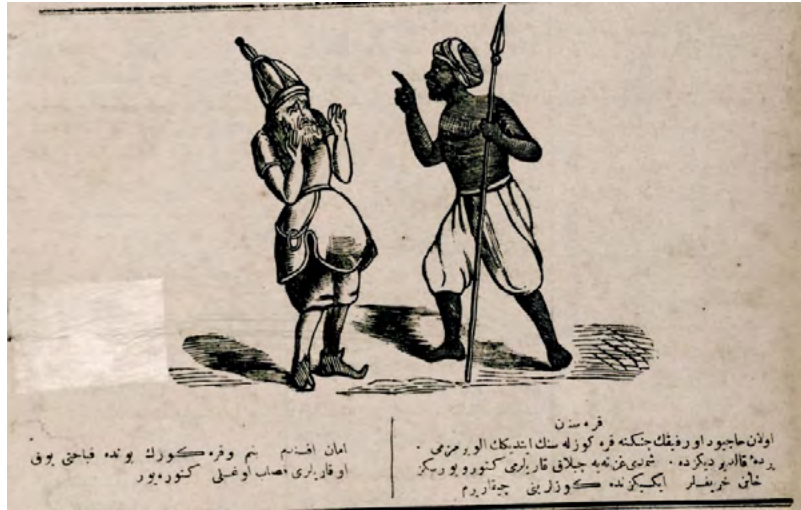 قره سنان
اولان حاجيود او رفيقك جنكنه قره كوزله سنك ايتديكك الويرمزمى .
پرده قالديرديكزده . شمدى غزته يه چپلاق قاريلرمى كتورويورسكز
خائن حريفلر ايكيكزنده كوزلرينى چيقاريرم
امان افندم بنم وقره كوزك بونده قباحتى يوق
او قاريلرى قصاب اوغلى كتوره يور